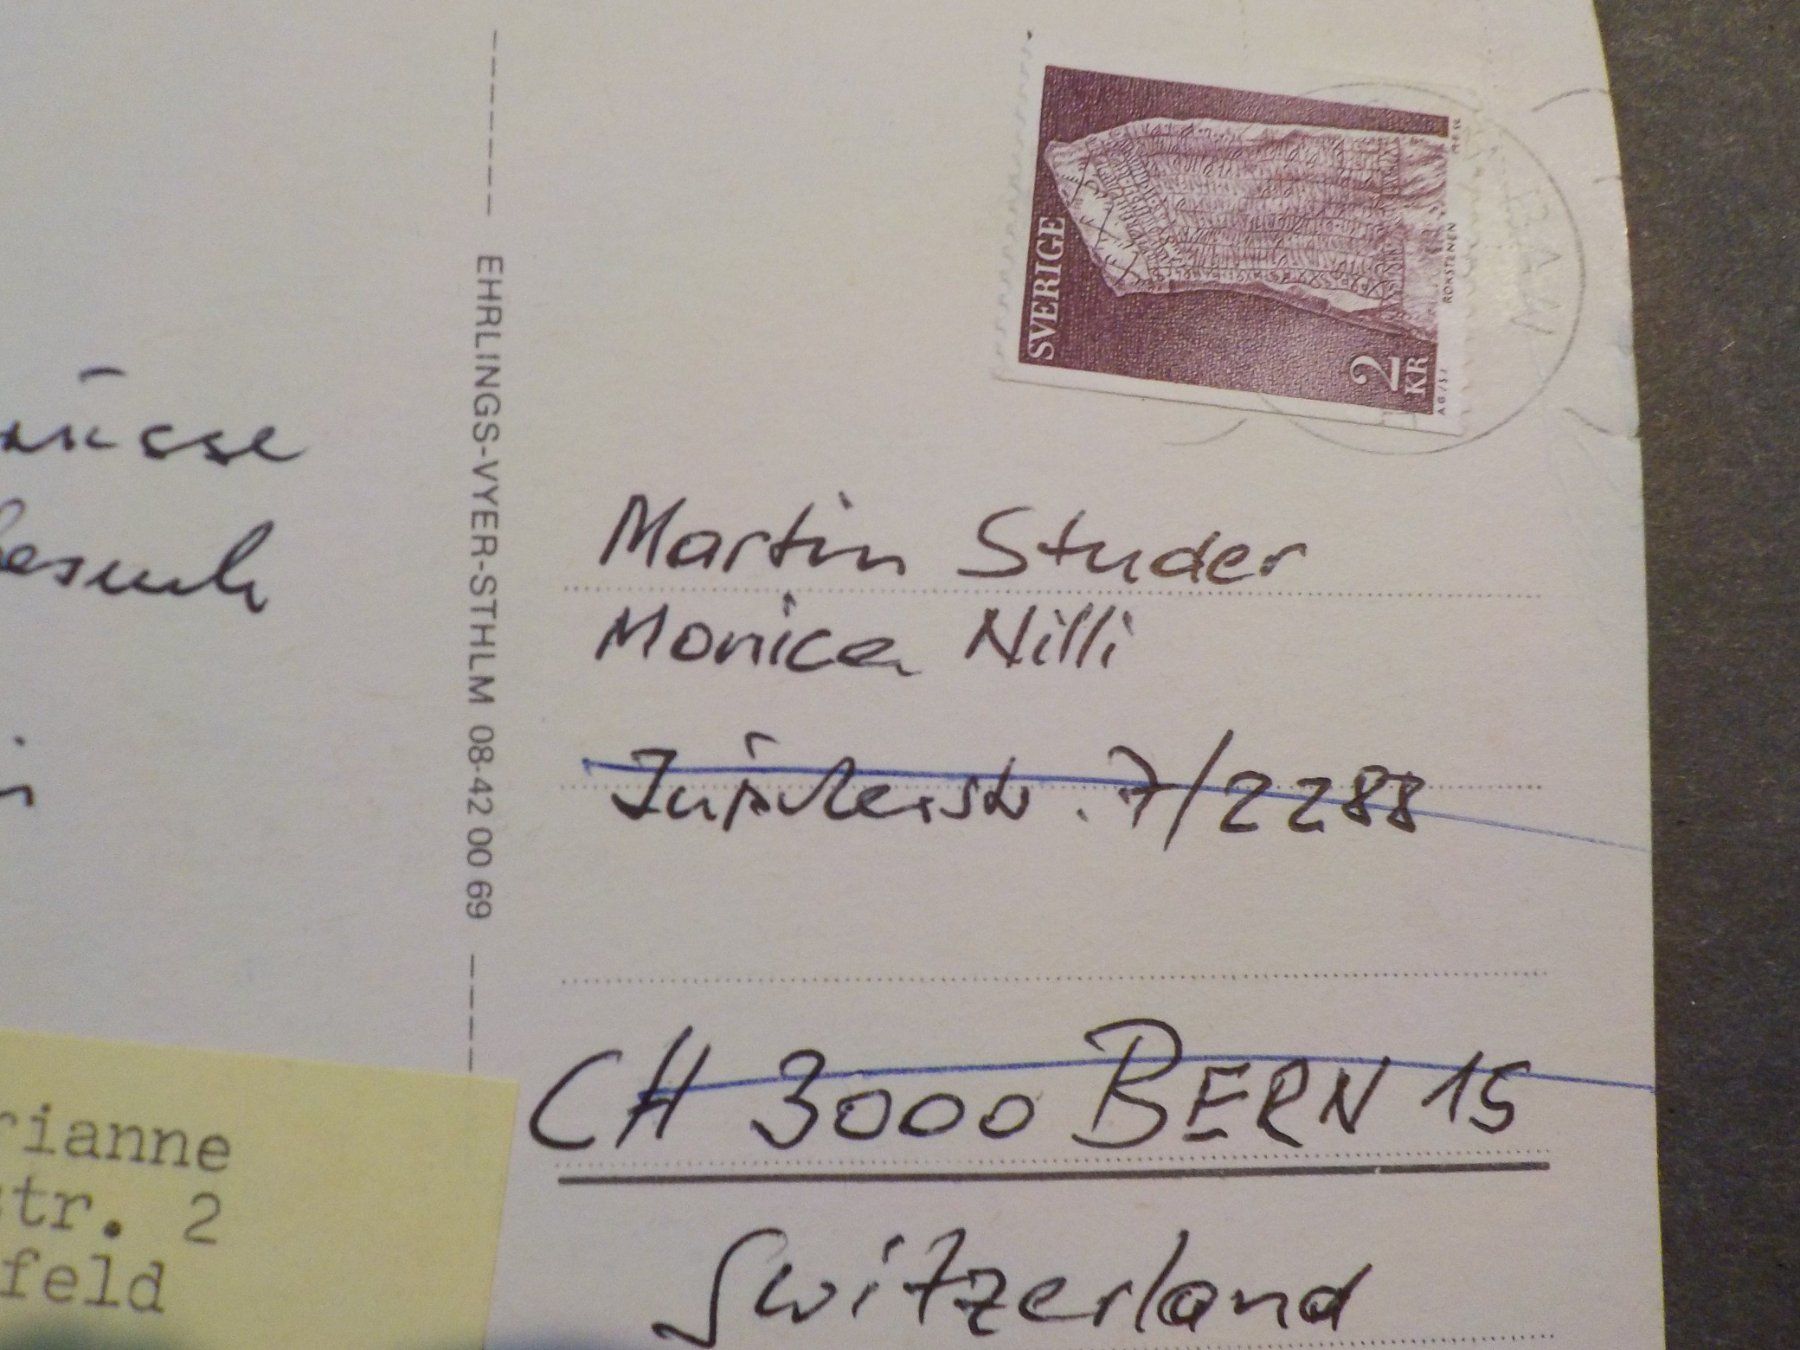 SVERIGE
2 KR
RÖKSTENEN
EHRLINGS-VYER-STHLM 08-42 00 69
Martin Studer
Monica Nilli
Jupiterstr. 7/2288
CH 3000 BERN 15
Switzerland
rianne
str. 2
feld